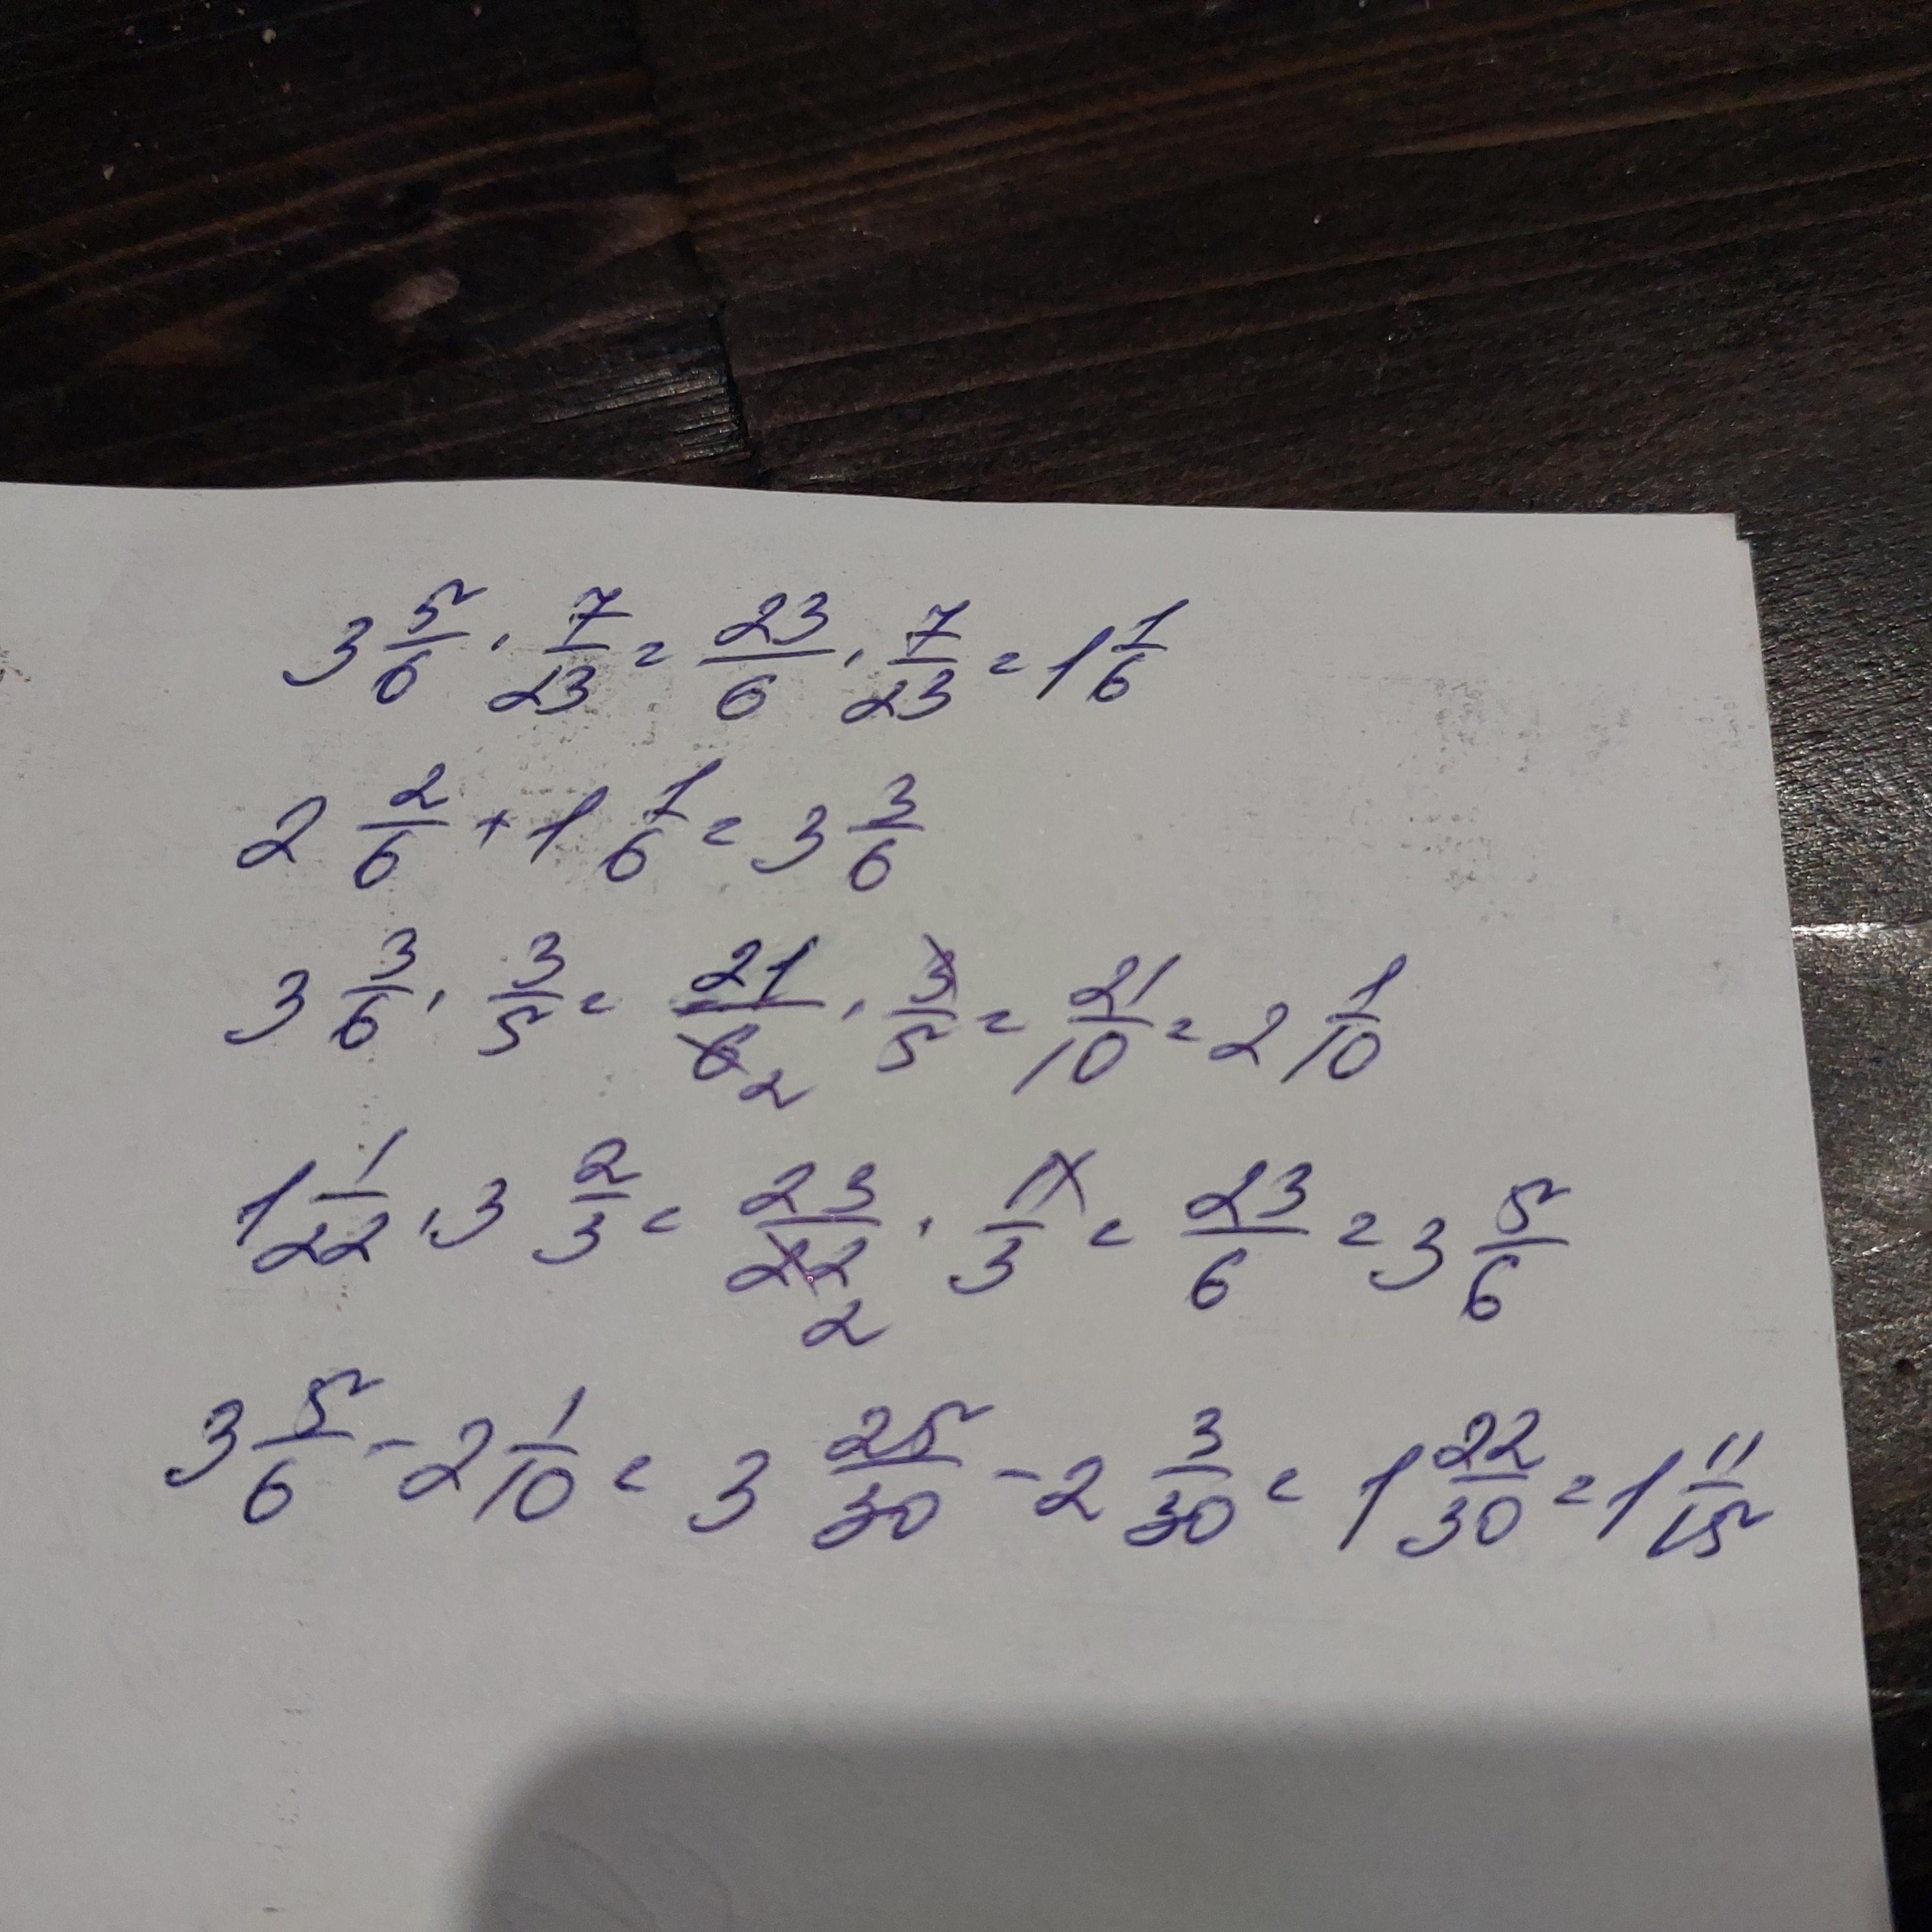 3 5/6 · 7/23 = 23/6 · 7/23 = 1 1/6
2 2/6 + 1 1/6 = 3 3/6
3 3/6 · 3/5 = 21/6 2 · 3/5 = 21/10 = 2 1/10
1 1/22 · 3 2/3 = 23/22 2 · 11/3 = 23/6 = 3 5/6
3 5/6 - 2 1/10 = 3 25/30 - 2 3/30 = 1 22/30 = 1 11/15